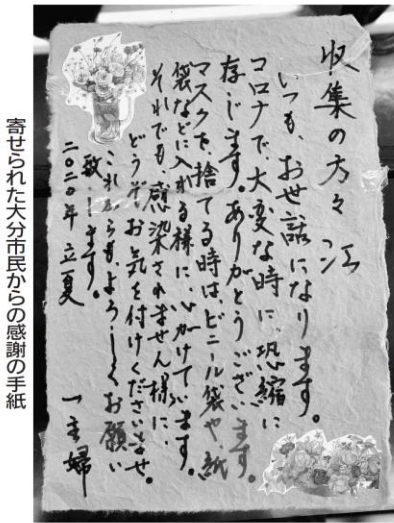 収集の方々 江
いつも、お世話になります。
コロナで、大変な時に、恐縮に
存じます。ありがとうございます。
マスクを、捨てる時は、ビニール袋や、紙
袋などに入れる様に、心がけています。
それでも、感染されません様に、
どうぞお気を付けくださいませ。
これからも、よろしくお願い
致します。
二〇二〇年 立夏
一主婦
寄せられた大分市民からの感謝の手紙